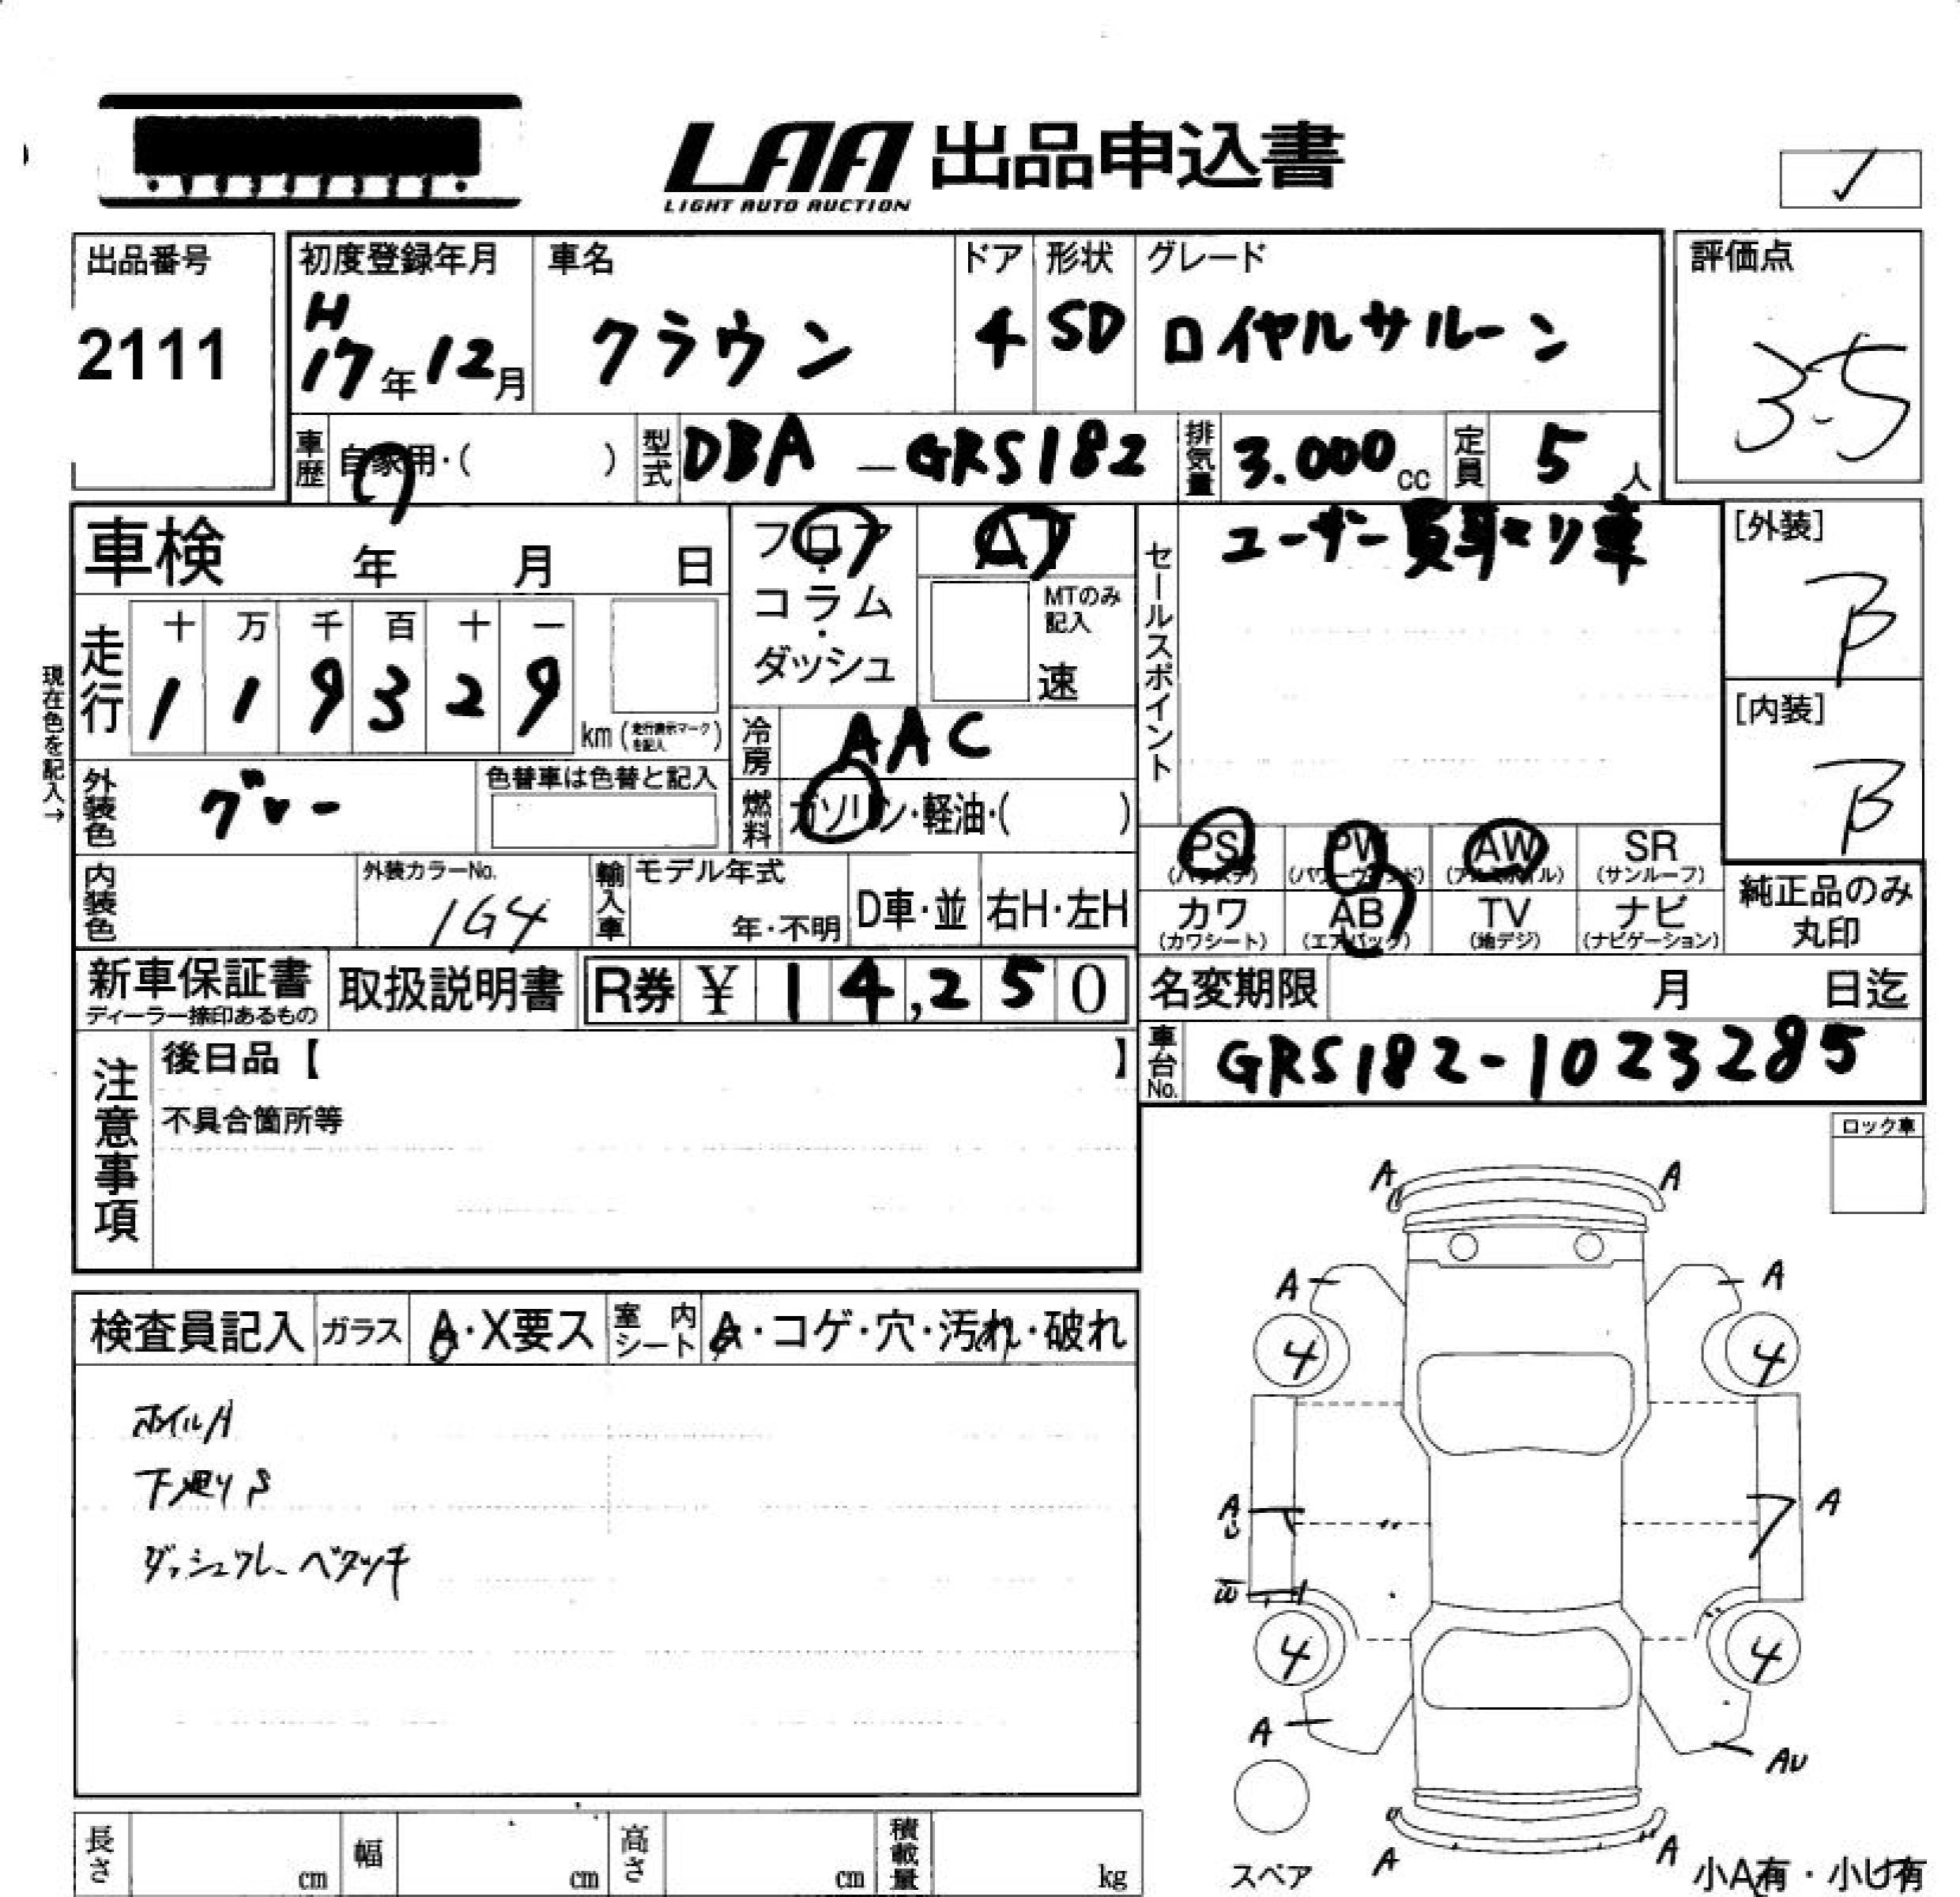 LAA 出品申込書
LIGHT AUTO AUCTION
✓
出品番号
2111
初度登録年月
H
17年12月
車名
クラウン
ドア
4
形状
SD
グレード
ロイヤルサルーン
評価点
3.5
車歴
自家用・( )
型式
DBA-GRS182
排気量
3.000cc
定員
5人
車検 年 月 日
フロア
・
コラム
・
ダッシュ
AT
MTのみ
記入
速
セールスポイント
ユーザー買取セリ車
[外装]
B
[内装]
B
現在色を記入→
走行
十 万 千 百 十 一
1 1 9 3 2 9
km(走行表示マークを記入)
冷房
AAC
外装色
グレー
色替車は色替と記入
燃料
ガソリン・軽油・( )
PS
(パワステ)
PW
(パワーウィンド)
AW
(アルミホイル)
SR
(サンルーフ)
カワ
(カワシート)
AB
(エアバック)
TV
(地デジ)
ナビ
(ナビゲーション)
純正品のみ
丸印
内装色
外装カラーNo.
1G4
輸入車
モデル年式
年・不明
D車・並
右H・左H
新車保証書
ディーラー捺印あるもの
取扱説明書
R券 ¥ 14,250
名変期限 月 日迄
車台No.
GRS182-1023285
注意事項
後日品【 】
不具合箇所等
ロック車
検査員記入
ガラス
A・X要ス
室内シート
A・コゲ・穴・汚れ・破れ
ホイルA
下廻りS
ダッシュワレ-ベタツキ
A A
A A
4 4
A A
U
W
4 4
A AU
A A
スペア
小A有・小U有
長さ cm
幅 cm
高さ cm
積載量 kg